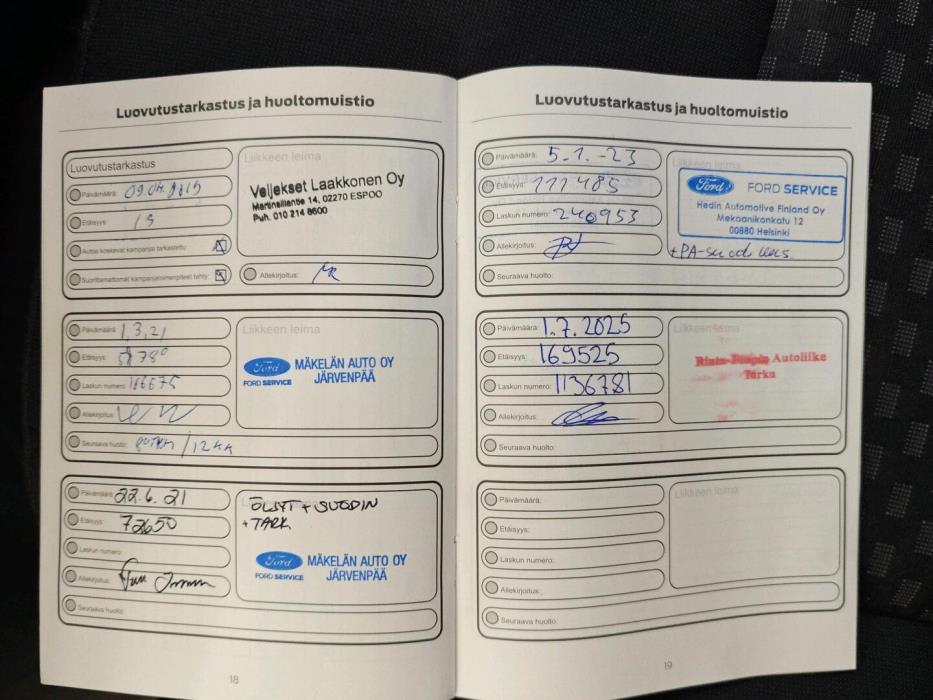 Luovutustarkastus ja huoltomuistio
Luovutustarkastus
Liikkeen leima
Päivämäärä:
Veljekset Laakkonen Oy
Martinsillantie 14, 02270 ESPOO
Puh. 010 214 8600
Etäisyys:
Autoa koskevat kampanjat tarkastettu:
Suorittamattomat kampanjatoimenpiteet tehty:
Allekirjoitus:
Päivämäärä: 1.3.21
Liikkeen leima
Etäisyys:
Ford
FORD SERVICE
MÄKELÄN AUTO OY
JÄRVENPÄÄ
Laskun numero: 166675
Allekirjoitus:
Seuraava huolto: /12KK
Päivämäärä: 22.6.21
ÖLJYT + SUODIN
+ TARK
Etäisyys: 72650
Laskun numero:
Ford
FORD SERVICE
MÄKELÄN AUTO OY
JÄRVENPÄÄ
Allekirjoitus:
Seuraava huolto:
18
Luovutustarkastus ja huoltomuistio
Päivämäärä: 5.1.-23
Liikkeen leima
Etäisyys: 111485
Ford FORD SERVICE
Hedin Automotive Finland Oy
Mekaanikonkatu 12
00880 Helsinki
Laskun numero: 240953
Allekirjoitus:
Seuraava huolto:
Päivämäärä: 1.7.2025
Liikkeen leima
Etäisyys: 169525
Autoliike
Turku
Laskun numero: 1136781
Allekirjoitus:
Seuraava huolto:
Päivämäärä:
Liikkeen leima
Etäisyys:
Laskun numero:
Allekirjoitus:
Seuraava huolto:
19